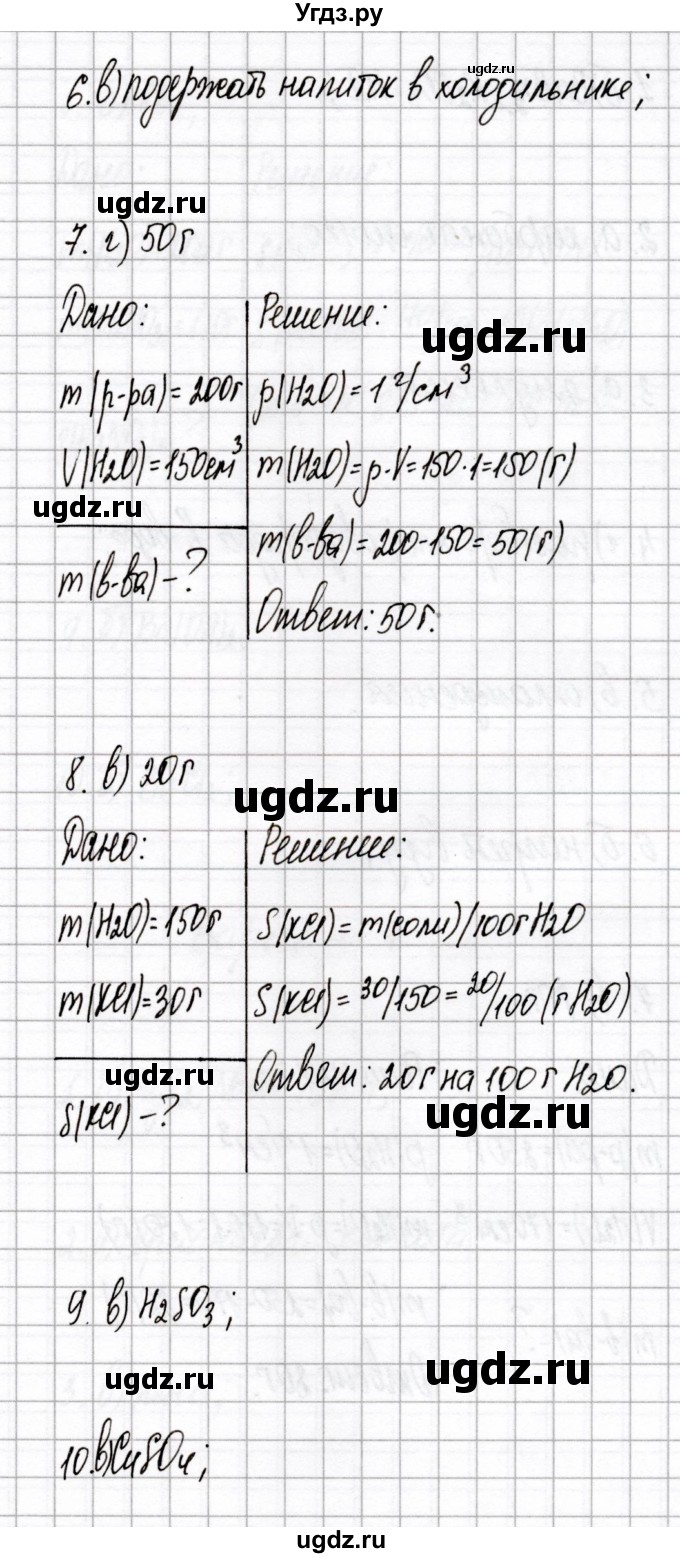 Угдз.ру
ugdz.ru
6. в) подержать напиток в холодильнике;
ugdz.ru
7. г) 50 г
Дано:
Решение:
ugdz.ru
m(р-ра) = 200г
ρ(H2O) = 1 г/см³
V(H2O) = 150 см³
m(H2O) = ρ·V = 150·1 = 150 (г)
ugdz.ru
m(в-ва) = 200 - 150 = 50 (г)
m(в-ва) - ?
Ответ: 50 г.
8. в) 20 г
ugdz.ru
Дано:
Решение:
m(H2O) = 150 г
S(KCl) = m(соли)/100г H2O
m(KCl) = 30 г
S(KCl) = 30/150 = 20/100 (г H2O)
Ответ: 20 г на 100 г H2O.
ugdz.ru
S(KCl) - ?
ugdz.ru
9. в) H2SO3;
ugdz.ru
ugdz.ru
10. в) CuSO4;
ugdz.ru